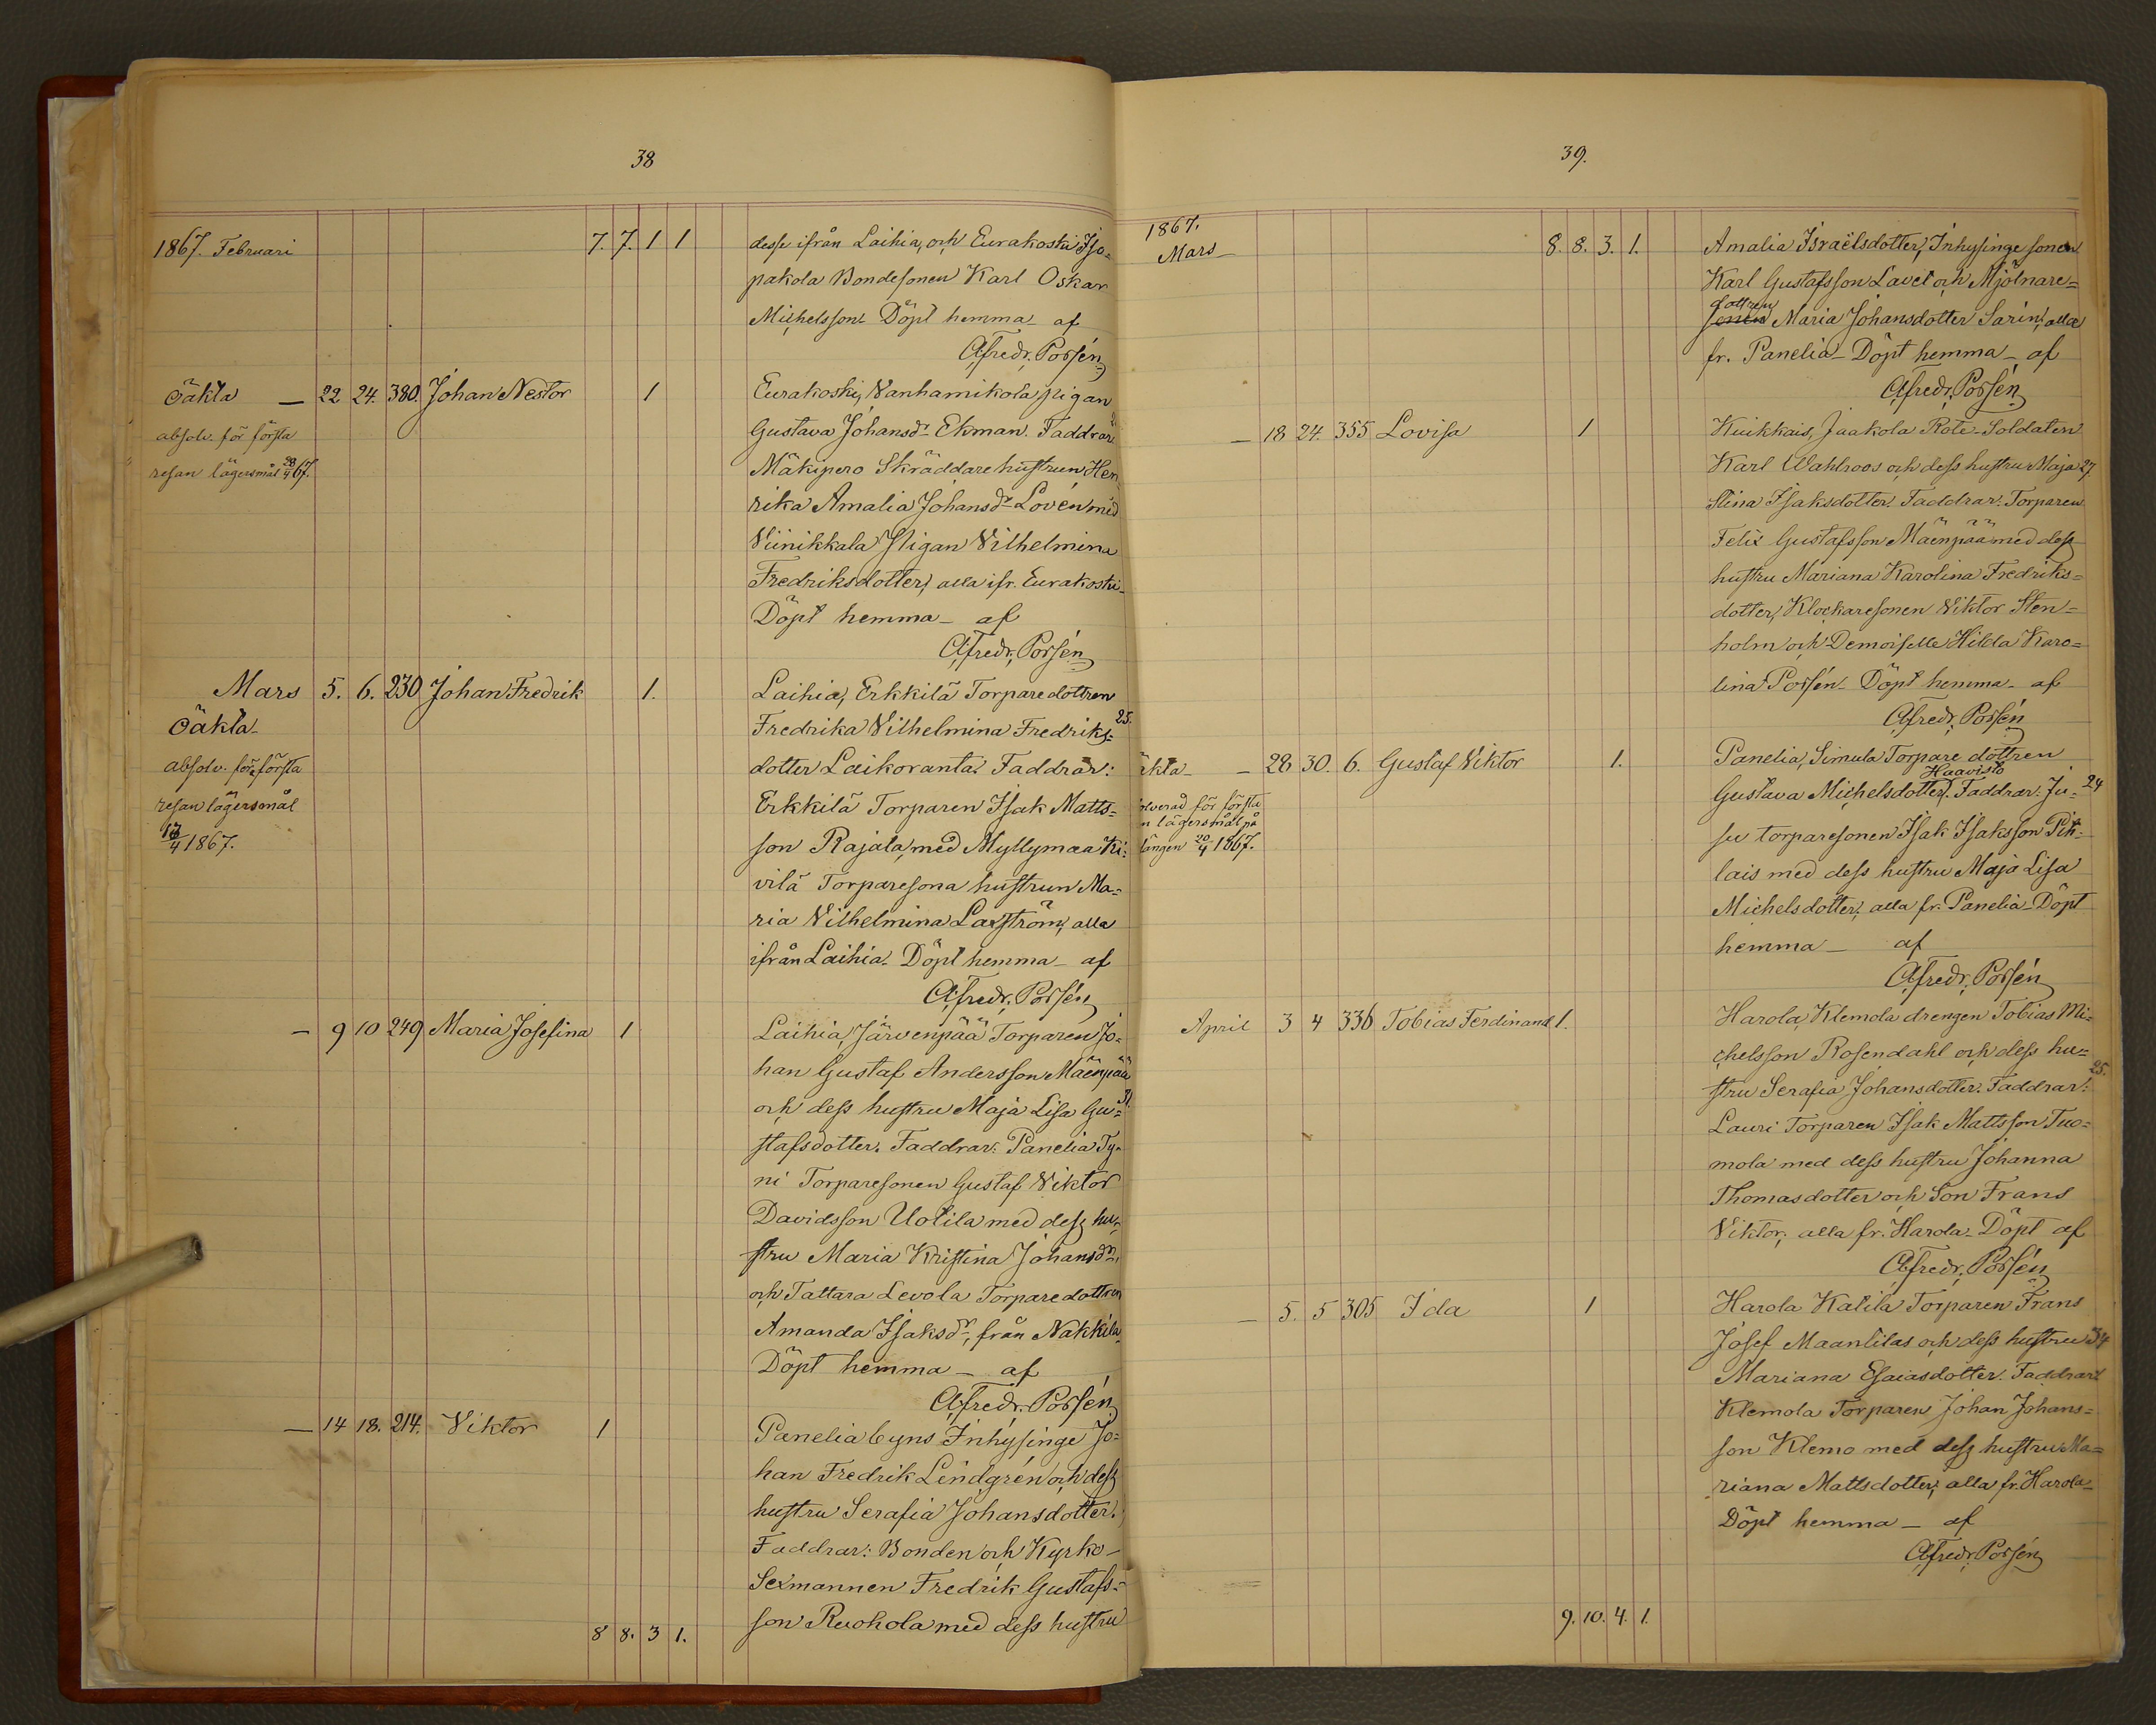 38
1867. Februari 7. 7. 1 1 desse ifrån Laihia, och Eurakoski Iso-
pakola Bondesonen Karl Oskar
Michelsson. Döpt hemma - af
Afredr. Porsén
Oäkta — 22 24. 380. Johan Nestor 1 Eurakoski, Vanhamikola pigan
absolv. för första Gustava Johansdr Ekman. Faddrar:
resan lägersmål 28/4 67. Mäkipero Skräddare hustrun Hen-
rika Amalia Johansdr Lovén med
Viinikkala pigan Vilhelmina
Fredriksdotter, alla ifr. Eurakoski -
Döpt hemma - af
Afredr. Porsén
Mars 5. 6. 230 Johan Fredrik 1. Laihia, Erkkilä Torparedottren
Oäkta - Fredrika Vilhelmina Fredriks= 25.
absolv. för första dotter Laikoranta. Faddrar:
resan lägersmål Erkkilä Torparen Isak Matts=
/4 1867. son Rajala, med Myllymaa Ki=
vilä Torparesona hustrun Ma=
ria Vilhelmina Laxström, alla
ifrån Laihia. Döpt hemma - af
Afredr. Porsén
— 9 10 249 Maria Josefina 1 Laihia, Järvenpää Torparen Jo=
han Gustaf Andersson Mäenpää
och dess hustru Maja Lisa Gu=
stafsdotter. Faddrar: Panelia Ty-
ni Torparesonen Gustaf Viktor
Davidsson Uotila med dess hu=
stru Maria Kristina Johansdr,
och Tattara Levola Torparedottren
Amanda Isaksdr, från Nakkila.
Döpt hemma - af
Afredr. Porsén
— 14 18. 214. Viktor 1 Panelia byns Inhysinge Jo=
han Fredrik Lindgrén och dess
hustru Serafia Johansdotter.
Faddrar: Bonden och Kyrko-
Sexmannen Fredrik Gustafs=
8 8. 3 1. son Ruohola med dess hustru
39.
1867.
Mars - 8. 8. 3. 1. Amalia Israëlsdotter, Inhysinge sonen
Karl Gustafsson Lavet och Mjölnare=
dottren
sonen Maria Johansdotter Sarin, alla
fr. Panelia - Döpt hemma - af
Afredr. Porsén
— 18 24. 355 Lovisa 1 Kuikkais, Jaakola Rote-Soldaten
Karl Wahlroos och dess hustru Maja 27.
Stina Isaksdotter. Faddrar: Torparen
Felix Gustafsson Mäenpää med dess
hustru Mariana Karolina Fredriks=
dotter, Klockaresonen Viktor Sten=
holm och Demoiselle Hilda Karo=
lina Porsén - Döpt hemma - af
Afredr. Porsén
äkta - — 28 30. 6. Gustaf Viktor 1. Panelia, Simula Torpare dottren
Haavisto
olverad för första Gustava Michelsdotter. Faddrar: Ju- 24
n lägersmål på su torparesonen Isak Isaksson Pih=
längen 20/4 1867. lais med dess hustru Maja Lisa
Michelsdotter, alla fr. Panelia - Döpt
hemma — af
Afredr. Porsén
April 3 4 336 Tobias Ferdinand 1. Harola, Klemola drengen Tobias Mi=
chelsson Rosendahl och dess hu=
stru Serafia Johansdotter. Faddrar: 25.
Lauri Torparen Isak Mattsson Tuo=
mola med dess hustru Johanna
Thomasdotter och Son Frans
Viktor, alla fr. Harola. Döpt af
Afredr. Porsén
— 5. 5 305 Ida 1 Harola Katila Torparen Frans
Josef Maantilas och dess hustru 34
Mariana Esaiasdotter. Faddrar:
Klemola Torparen Johan Johans=
son Klemo med dess hustru Ma=
riana Mattsdotter, alla fr. Harola -
Döpt hemma - af
Afredr. Porsén
9. 10. 4. 1.